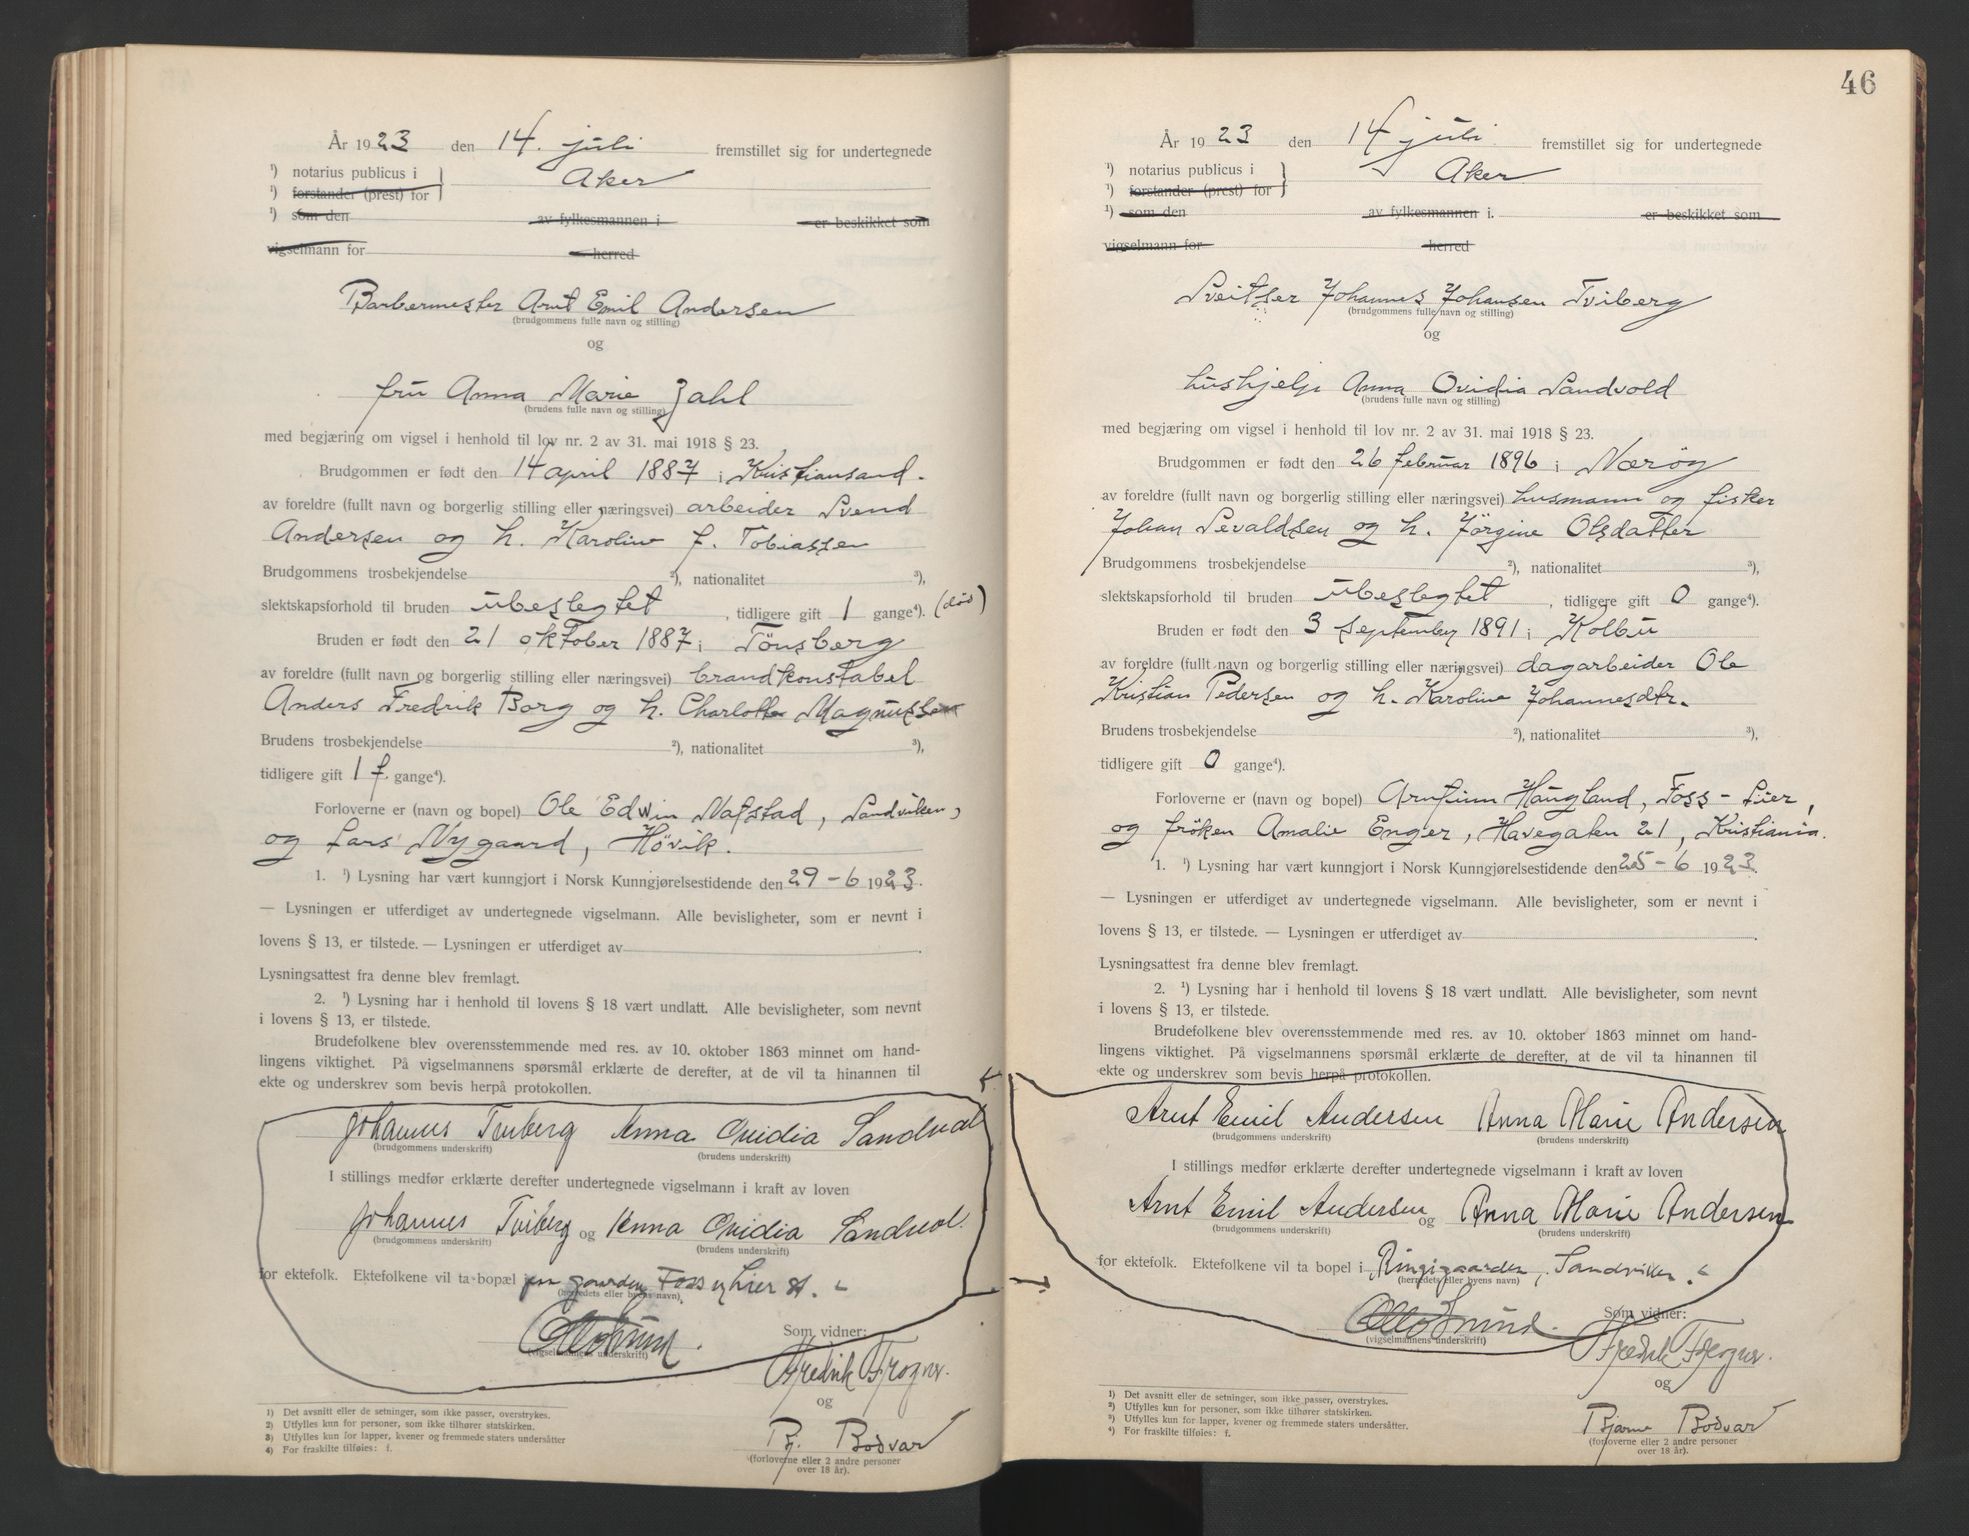 År 1923 den 14. juli fremstillet sig for undertegnede
¹) notarius publicus i } Aker
¹) forstander (prest) for
¹) som den av fylkesmannen i er beskikket som
vigselmann for herred
Barbermester Arnt Emil Andersen
(brudgommens fulle navn og stilling)
og
fru Anna Marie Zahl
(brudens fulle navn og stilling)
med begjæring om vigsel i henhold til lov nr. 2 av 31. mai 1918 § 23.
Brudgommen er født den 14 april 1887 i Kristiansand.
av foreldre (fullt navn og borgerlig stilling eller næringsvei) arbeider Svend
Andersen og h. Karoline f. Tobiassen
Brudgommens trosbekjendelse ²), nationalitet ³),
slektskapsforhold til bruden ubeslegtet, tidligere gift 1 gange⁴). (død)
Bruden er født den 21 oktober 1887 i Tönsberg
av foreldre (fullt navn og borgerlig stilling eller næringsvei) brandkonstabel
Anders Fredrik Borg og h. Charlotte Magnussen
Brudens trosbekjendelse ²), nationalitet ³),
tidligere gift 1 f. gange⁴).
Forloverne er (navn og bopel) Ole Edwin Nafstad, Sandviken,
og Lars Nygaard, Høvik.
1. ¹) Lysning har vært kunngjort i Norsk Kunngjørelsestidende den 29-6 1923.
— Lysningen er utferdiget av undertegnede vigselmann. Alle bevisligheter, som er nevnt i
lovens § 13, er tilstede. — Lysningen er utferdiget av .
Lysningsattest fra denne blev fremlagt.
2. ¹) Lysning har i henhold til lovens § 18 vært undlatt. Alle bevisligheter, som nevnt
i lovens § 13, er tilstede.
Brudefolkene blev overensstemmende med res. av 10. oktober 1863 minnet om hand-
lingens viktighet. På vigselmannens spørsmål erklærte de derefter, at de vil ta hinannen til
ekte og underskrev som bevis herpå protokollen.
Johannes Tviberg Anna Ovidia Sandvol
(brudgommens underskrift) (brudens underskrift)
I stillings medfør erklærte derefter undertegnede vigselmann i kraft av loven
Johannes Tviberg og Anna Ovidia Sandvol.
(brudgommens underskrift) (brudens underskrift)
for ektefolk. Ektefolkene vil ta bopæl i gaarden Foss Lier
(herredets eller byens navn)
(vigselmannens underskrift)
Som vidner:
Fredrik Frogner.
og
Bj. Bodvar
(forloverne eller 2 andre personer
over 18 år).
1) Det avsnitt eller de setninger, som ikke passer, overstrykes.
2) Utfylles kun for personer, som ikke tilhører statskirken.
3) Utfylles kun for lapper, kvener og fremmede staters undersåtter
4) For fraskilte tilføies: f.
46
År 1923 den 14 juli fremstillet sig for undertegnede
¹) notarius publicus i } Aker
¹) forstander (prest) for
¹) som den av fylkesmannen i. er beskikket som
vigselmann for herred
Sveitser Johannes Johansen Tviberg
(brudgommens fulle navn og stilling)
og
hushjelp Anna Ovidia Sandvold
(brudens fulle navn og stilling)
med begjæring om vigsel i henhold til lov nr. 2 av 31. mai 1918 § 23.
Brudgommen er født den 26 februar 1896 i Nærøy
av foreldre (fullt navn og borgerlig stilling eller næringsvei) husmann og fisker
Johan Sevaldsen og h. Jörgine Olsdatter
Brudgommens trosbekjendelse ²), nationalitet ³),
slektskapsforhold til bruden ubeslegtet, tidligere gift 0 gange⁴).
Bruden er født den 3 september 1891 i Kolbu
av foreldre (fullt navn og borgerlig stilling eller næringsvei) dagarbeider Ole
Kristian Pedersen og h. Karoline Johannesdtr.
Brudens trosbekjendelse ²), nationalitet ³),
tidligere gift 0 gange⁴).
Forloverne er (navn og bopel) Arnfinn Haugland, Foss - Lier,
og fröken Amalie Enger, Havegaten 21, Kristiania.
1. ¹) Lysning har vært kunngjort i Norsk Kunngjørelsestidende den 25-6 1923.
— Lysningen er utferdiget av undertegnede vigselmann. Alle bevisligheter, som er nevnt i
lovens § 13, er tilstede. — Lysningen er utferdiget av .
Lysningsattest fra denne blev fremlagt.
2. ¹) Lysning har i henhold til lovens § 18 vært undlatt. Alle bevisligheter, som nevnt
i lovens § 13, er tilstede.
Brudefolkene blev overensstemmende med res. av 10. oktober 1863 minnet om hand-
lingens viktighet. På vigselmannens spørsmål erklærte de derefter, at de vil ta hinannen til
ekte og underskrev som bevis herpå protokollen.
Arnt Emil Andersen Anna Marie Andersen
(brudgommens underskrift) (brudens underskrift)
I stillings medfør erklærte derefter undertegnede vigselmann i kraft av loven
Arnt Emil Andersen og Anna Marie Andersen
(brudgommens underskrift) (brudens underskrift)
for ektefolk. Ektefolkene vil ta bopel i Ringigaarden, Sandviken.
(herredets eller byens navn)
(vigselmannens underskrift)
Som vidner:
Fredrik Frogner.
og
Bjarne Bodvar
(forloverne eller 2 andre personer
over 18 år).
¹) Det avsnitt eller de setninger, som ikke passer, overstrykes.
²) Utfylles kun for personer, som ikke tilhører statskirken.
³) Utfylles kun for lapper, kvener og fremmede staters undersåtter.
⁴) For fraskilte tilføies: f.